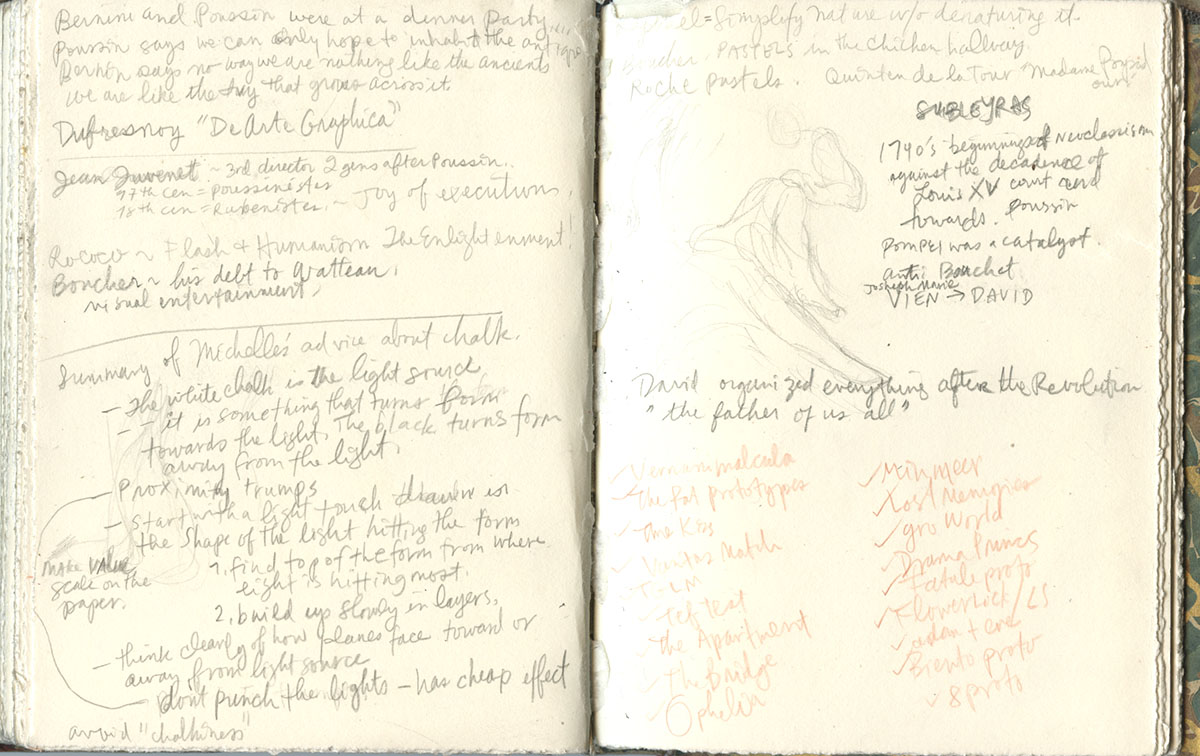 Bernini and Poussin were at a dinner party...
Poussin says we can only hope to inhabit the antique
Bernin says no way we are nothing like the ancients
we are like the ivy that grows across it.
Dufresnoy "De Arte Graphica"
Jean Juvenet ~ 3rd director 2 gens after Poussin.
17th cen = poussinistes
18th cen = Rubenistes. ~ Joy of execution.
Rococo ~ Flash + Humanism The Enlightenment!
Boucher ~ his debt to Watteau,
visual entertainment,
Summary of Michelle's advice about chalk.
- The white chalk is the light source,
- - it is something that turns form
towards the light, The black turns form
away from the light,
- Proximity trumps
- Start with a light touch drawin in
the shape of the light hitting the form
1. find top of the form from where
light is hitting most.
2. build up slowly in layers,
make VALUE
scale on the
paper.
- think clearly of how planes face toward or
away from light source
don't punch the lights - has cheap effect
avoid "chalkiness"
= Simplify nature w/o denaturing it.
Boucher PASTELS in the chicken hallway
Roche pastels. Quinten de la Tour "Madame
SUBLEYRAS
1740's beginnings of Neoclassism
against the decadence of
Louis XV court and
towards. Poussin
POMPEI was a catalyst.
anti Bouchet
Josheph Marie
VIEN → DAVID
David organized everything after the Revolution
"the father of us all"
The Fat prototypes
Time Kiss
Vanitas Match
T-LM
Tef test
The Apartment
The Bridge
Ophelia
Min meer
Lost Memories
gro World
Drama Princs
Fatale proto
Flower Lock/LS
adam + eve
Brento proto
8 proto